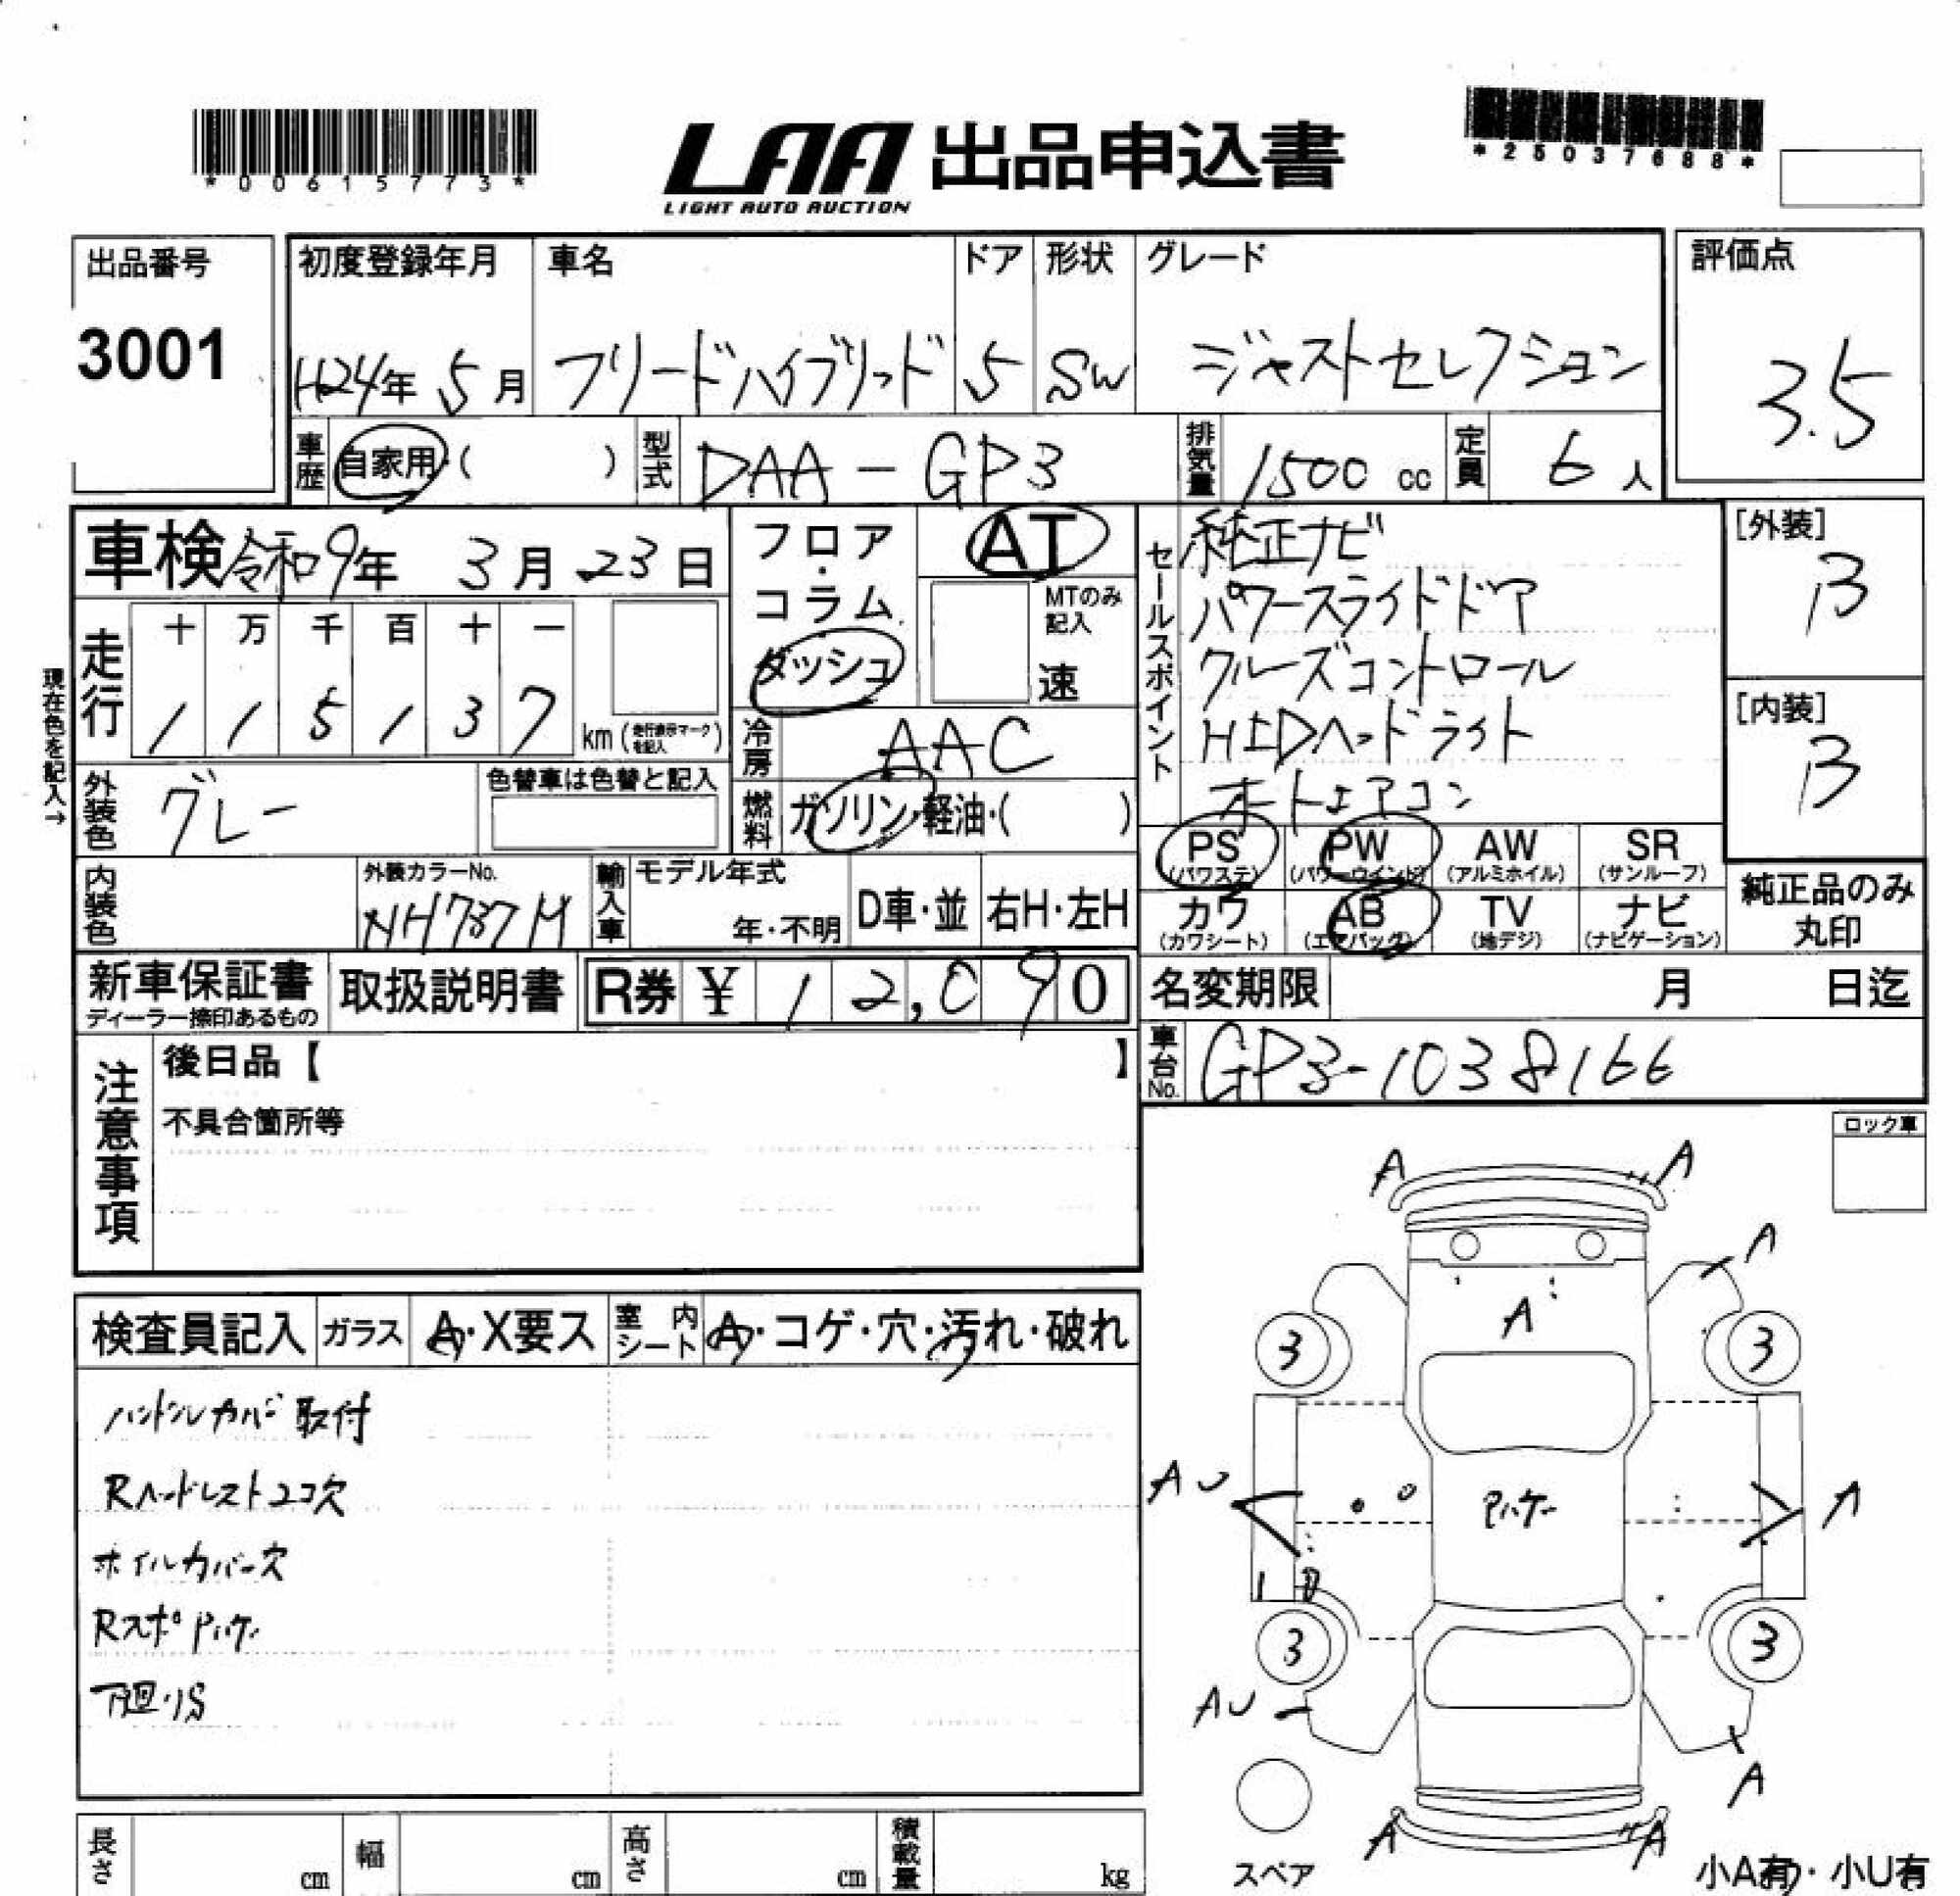 *00615773*
LAA 出品申込書
LIGHT AUTO AUCTION
*25037688*
出品番号
3001
初度登録年月
H24年 5月
車名
フリードハイブリッド
ドア
5
形状
SW
グレード
ジャストセレクション
評価点
3.5
車歴 自家用・( )
型式 DAA-GP3
排気量 1500 cc
定員 6人
車検 令和9年 3月 23日
フロア・コラム
ダッシュ
AT
MTのみ記入
速
セールスポイント
純正ナビ
パワースライドドア
クルーズコントロール
HIDヘッドライト
オートエアコン
[外装]
B
[内装]
B
現在色を記入→
走行
十 万 千 百 十 一
1 1 5 1 3 7 km (走行表示マークを記入)
冷房 AAC
外装色 グレー
色替車は色替と記入
燃料 ガソリン・軽油・( )
PS (パワステ)
PW (パワーウインド)
AW (アルミホイル)
SR (サンルーフ)
カワ (カワシート)
AB (エアバッグ)
TV (地デジ)
ナビ (ナビゲーション)
純正品のみ丸印
内装色
外装カラーNo.
NH737M
輸入車
モデル年式
年・不明
D車・並
右H・左H
新車保証書
ディーラー捺印あるもの
取扱説明書
R券 ¥ 12,090
名変期限 月 日迄
車台No. GP3-1038166
注意事項
後日品【 】
不具合箇所等
ロック車
検査員記入
ガラス A・X要ス
室内シート A・コゲ・穴・汚れ・破れ
ハンドルカバー取付
Rヘッドレスト2コ欠
ホイルカバー欠
Rスポ Pハゲ
下廻りS
A
A
A
A
3
3
AU
Pハゲ
A
3
3
AU
A
A
A
スペア
小A有・小U有
長さ cm
幅 cm
高さ cm
積載量 kg